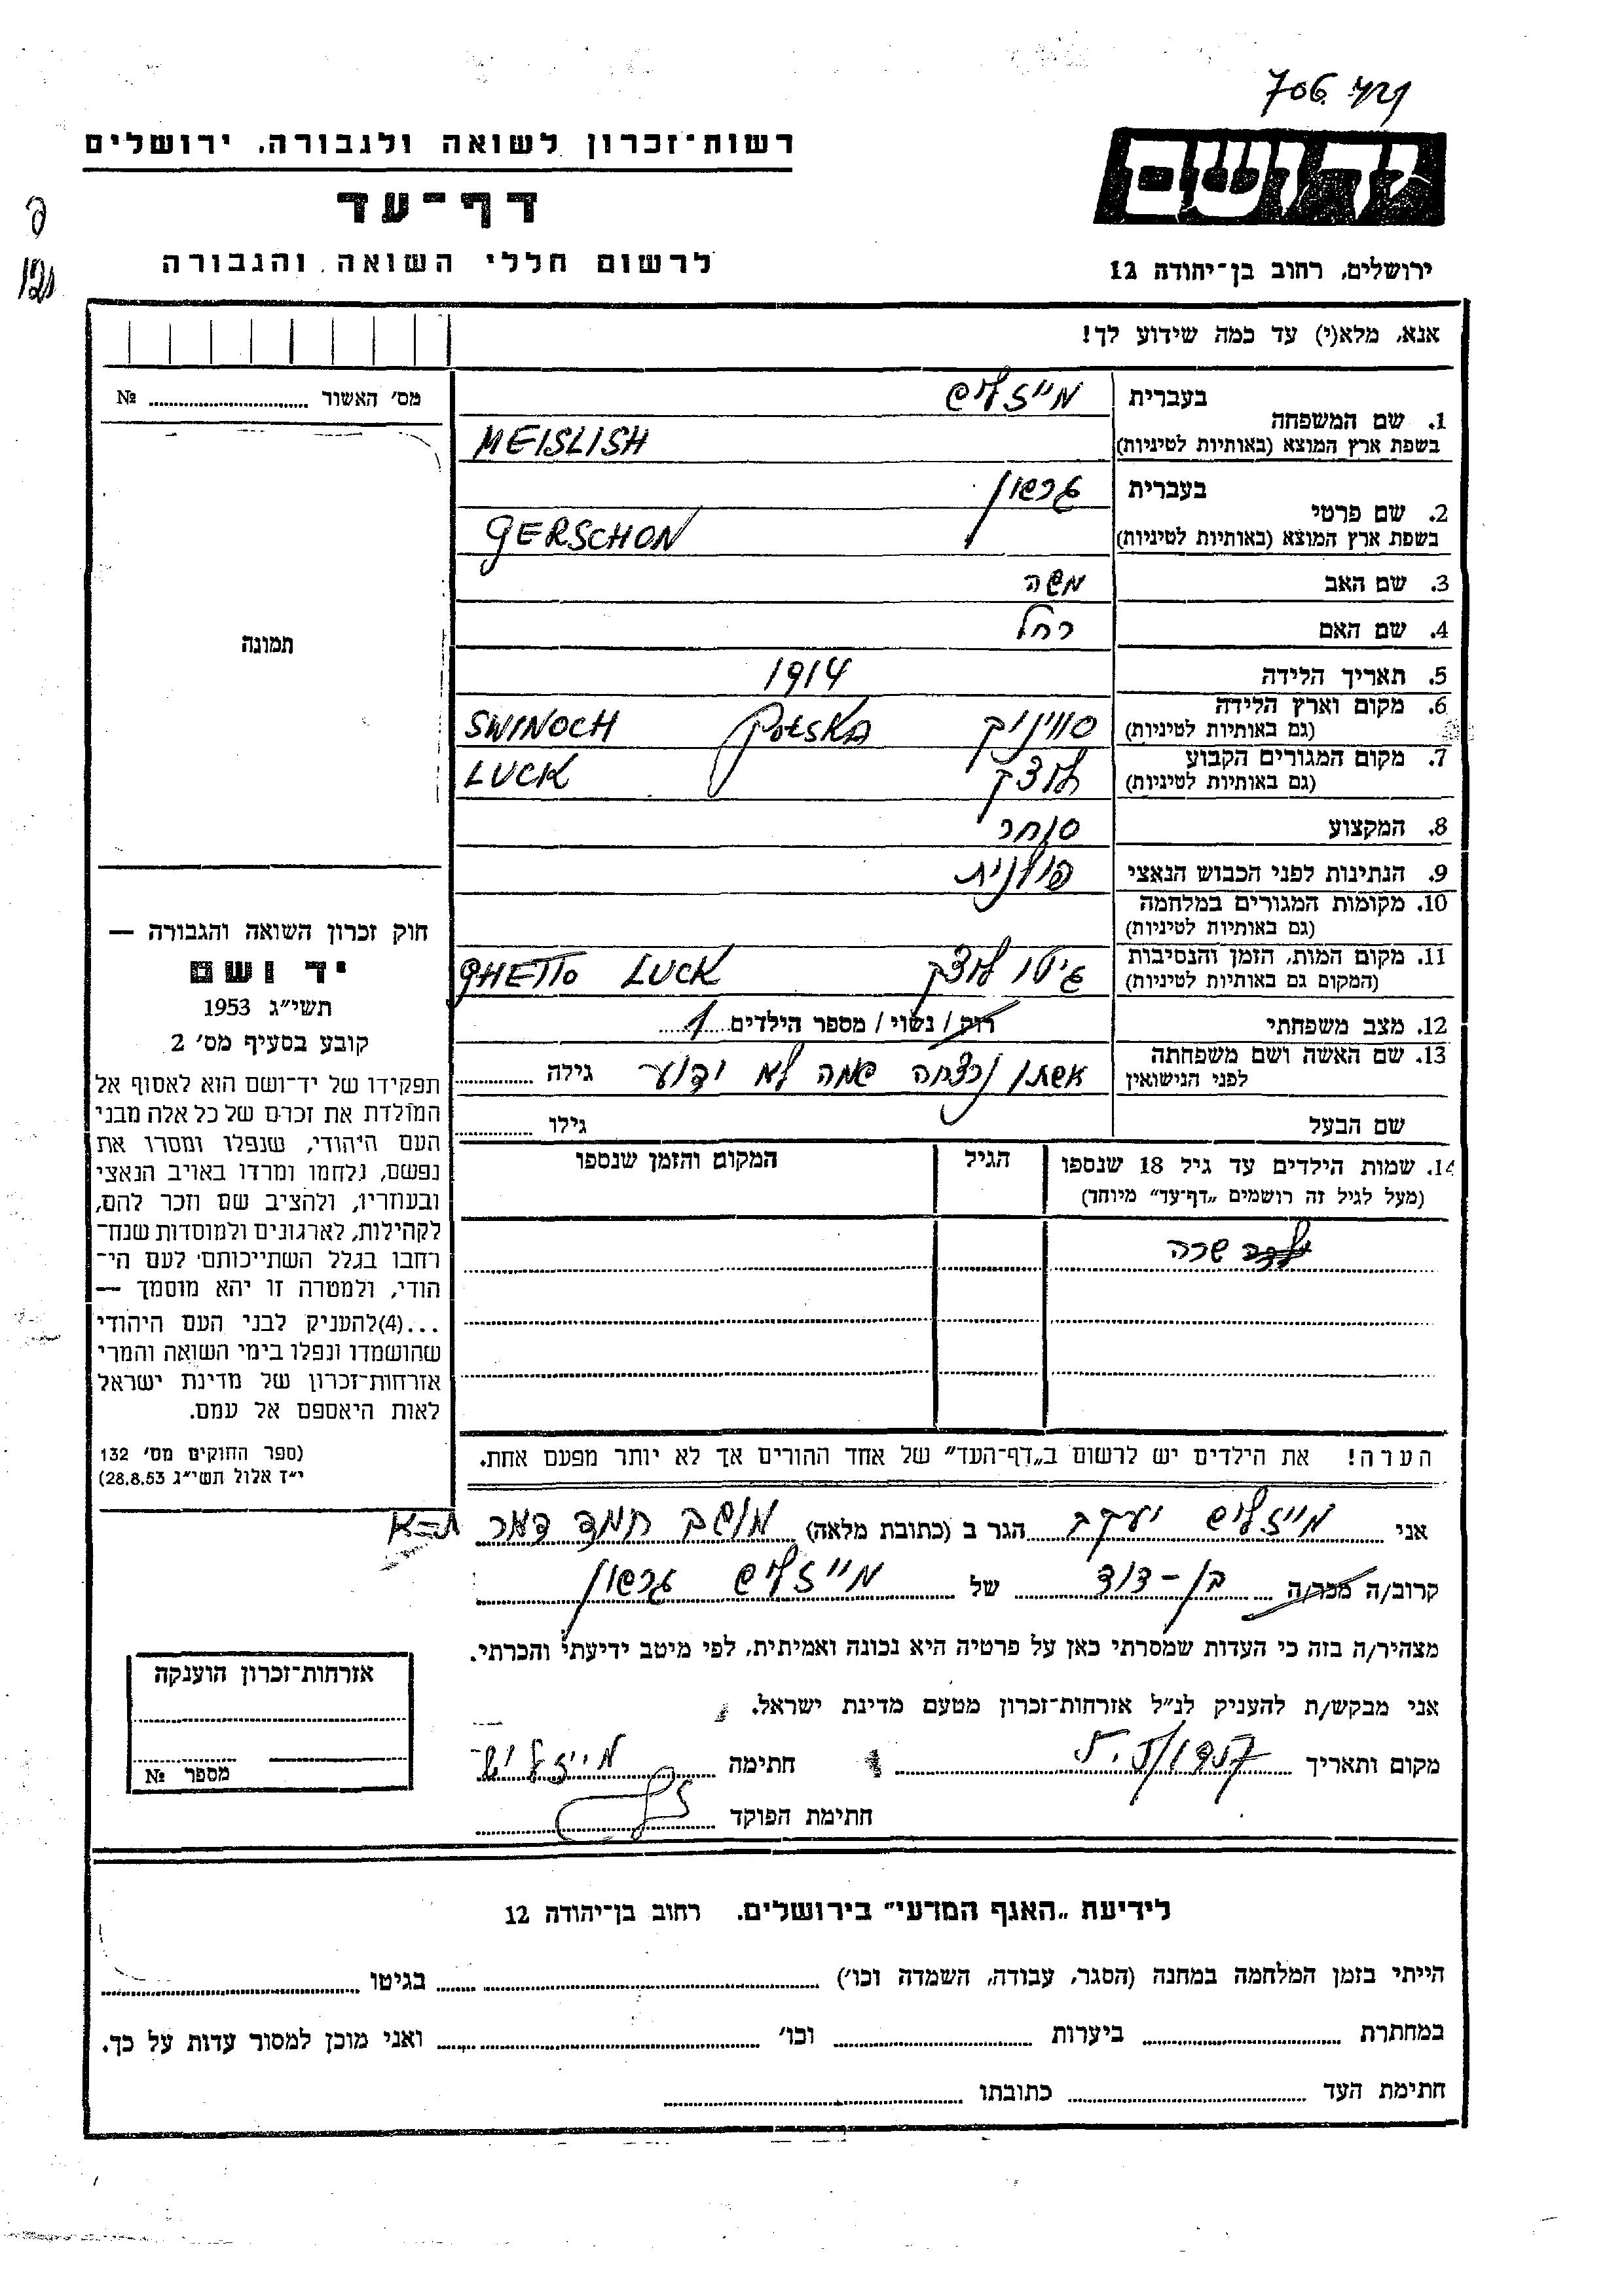 706
יד ושם
רשות־זכרון לשואה ולגבורה, ירושלים
דף־עד
לרשום חללי השואה והגבורה
ירושלים, רחוב בן־יהודה 12
אנא, מלא(י) עד כמה שידוע לך!
מס' האשור № 
תמונה
1. שם המשפחה בעברית מייזליש
בשפת ארץ המוצא (באותיות לטיניות) MEISLISH
2. שם פרטי בעברית גרשון
בשפת ארץ המוצא (באותיות לטיניות) GERSCHON
3. שם האב משה
4. שם האם רחל
5. תאריך הלידה 1914
6. מקום וארץ הלידה
(גם באותיות לטיניות) SWINOCH
7. מקום המגורים הקבוע
(גם באותיות לטיניות) לוצק LUCK
8. המקצוע סוחר
9. הנתינות לפני הכבוש הנאצי פולנית
10. מקומות המגורים במלחמה
(גם באותיות לטיניות)
11. מקום המות, הזמן והנסיבות
(המקום גם באותיות לטיניות) גיטו לוצק GHETTO LUCK
12. מצב משפחתי רוק / נשוי / מספר הילדים 1
13. שם האשה ושם משפחתה
לפני הנישואין אשתו נרצחה שמה לא ידוע גילה
שם הבעל גילו
14. שמות הילדים עד גיל 18 שנספו הגיל המקום והזמן שנספו
(מעל לגיל זה רושמים „דף־עד" מיוחד)
שרה
הערה! את הילדים יש לרשום ב„דף־העד" של אחד ההורים אך לא יותר מפעם אחת.
חוק זכרון השואה והגבורה —
יד ושם
תשי"ג 1953
קובע בסעיף מס' 2
תפקידו של יד־ושם הוא לאסוף אל
המולדת את זכרם של כל אלה מבני
העם היהודי, שנפלו ומסרו את
נפשם, נלחמו ומרדו באויב הנאצי
ובעוזריו, ולהציב שם וזכר להם,
לקהילות, לארגונים ולמוסדות שנח־
רבו בגלל השתייכותם לעם הי־
הודי, ולמטרה זו יהא מוסמך —
...(4)להעניק לבני העם היהודי
שהושמדו ונפלו בימי השואה והמרי
אזרחות־זכרון של מדינת ישראל
לאות היאספם אל עמם.
(ספר החוקים מס' 132
י"ז אלול תשי"ג 28.8.53)
אני מייזליש יעקב הגר ב (כתובת מלאה) מושב
קרוב/ה מכר/ה בן-דוד של מייזליש גרשון
מצהיר/ה בזה כי העדות שמסרתי כאן על פרטיה היא נכונה ואמיתית, לפי מיטב ידיעתי והכרתי.
אני מבקש/ת להעניק לנ"ל אזרחות־זכרון מטעם מדינת ישראל.
מקום ותאריך חתימה מייזליש
חתימת הפוקד
אזרחות־זכרון הוענקה
מספר №
לידיעת „האגף המדעי" בירושלים, רחוב בן־יהודה 12
הייתי בזמן המלחמה במחנה (הסגר, עבודה, השמדה וכו') בגיטו
במחתרת ביערות וכו' ואני מוכן למסור עדות על כך.
חתימת העד כתובתו